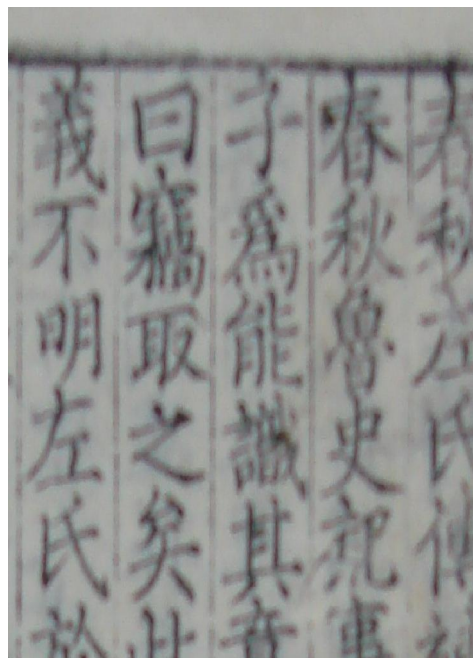 春秋左氏傳
春秋魯史記事
子為能識其意
曰竊取之矣此
義不明左氏於